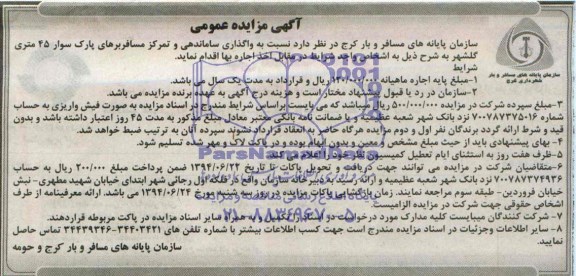 آگهی مزایده عمومی
سازمان پایانه های مسافر و بار کرج در نظر دارد نسبت به واگذاری ساماندهی و تمرکز مسافربرهای پارک سوار ۴۵ متری
گلشهر به شرح ذیل به اشخاص واجد شرایط در مقابل اخذ اجاره بها اقدام نماید.
شرایط
۱-مبلغ پایه اجاره ماهیانه ریال و قرارداد به مدت یک سال می باشد.
۲-سازمان در رد یا قبول پیشنهاد مختار است و هزینه درج آگهی به عهده برنده مزایده می باشد.
۳-مبلغ سپرده شرکت در مزایده ۵۰۰/۰۰۰/۰۰۰ ریال میباشد که می بایست براساس شرایط مندرج در اسناد مزایده به صورت فیش واریزی به حساب
شماره ۷۰۰۷۸۷۳۷۵۰۱۶ نزد بانک شهر شعبه عظیمیه و یا ضمانت نامه بانکی معتبر معادل مبلغ مذکور به مدت ۴۵ روز اعتبار داشته باشد و بدون
قید و شرط ارائه گردد برندگان نفر اول و دوم مزایده هرگاه حاضر به انعقاد قرارداد نشوند سپرده آنان به ترتیب ضبط خواهد شد.
۴- بهای پیشنهادی باید از حیث مبلغ مشخص و معین و بدون ابهام بوده و در پاکت لاک و مهر شده تسلیم شود.
۵-ظرف هفت روز به استثنای ایام تعطیل کمیسیون نظر خود را اعلام می کند.
۶-متقاضیان شرکت در مزایده می توانند جهت دریافت و تحویل پاکات تا تاریخ ۱۳۹۴/۰۶/۲۳ ضمن پرداخت مبلغ ۲۰۰/۰۰۰ ریال به حساب
۷۰۰۷۸۷۳۷۴۹۳۶ نزد بانک شهر شعبه عظیمیه و ارائه فیش به دبیرخانه سازمان واقع در فلکه اول رجائی شهر ابتدای خیابان شهید مطهری- نبش
خیابان فروردین- طبقه سوم مراجعه نمایند. زمان بازگشایی پاکات مزایده در روز سه شنبه مورخ ۱۳۹۴/۰۶/۲۴ می باشد. ارائه معرفینامه از طرف
اشخاص حقوقی جهت شرکت در مزایده الزامیست.
۷- شرکت کنندگان میبایست کلیه مدارک مورد درخواست در مزایده را سایر اسناد مزایده در پاکت مربوطه قراردهند.
۸- سایر اطلاعات وجزئیات در اسناد مزایده مندرج است جهت کسب اطلاعات بیشتر با شماره تلفن های ۳۴۴۰۳۴۲۱-۳۴۴۳۹۳۴۶ تماس حاصل نمایید.
سازمان پایانه های مسافر و بار کرج و حومه
سازمان پایانه های مسافر و بار
شهرداری کرج
ParsNamadData
پایگاه اطلاع رسانی مناقصه و مزایده
۰۲۱-۸۸۳۴۹۶۷۰-۵